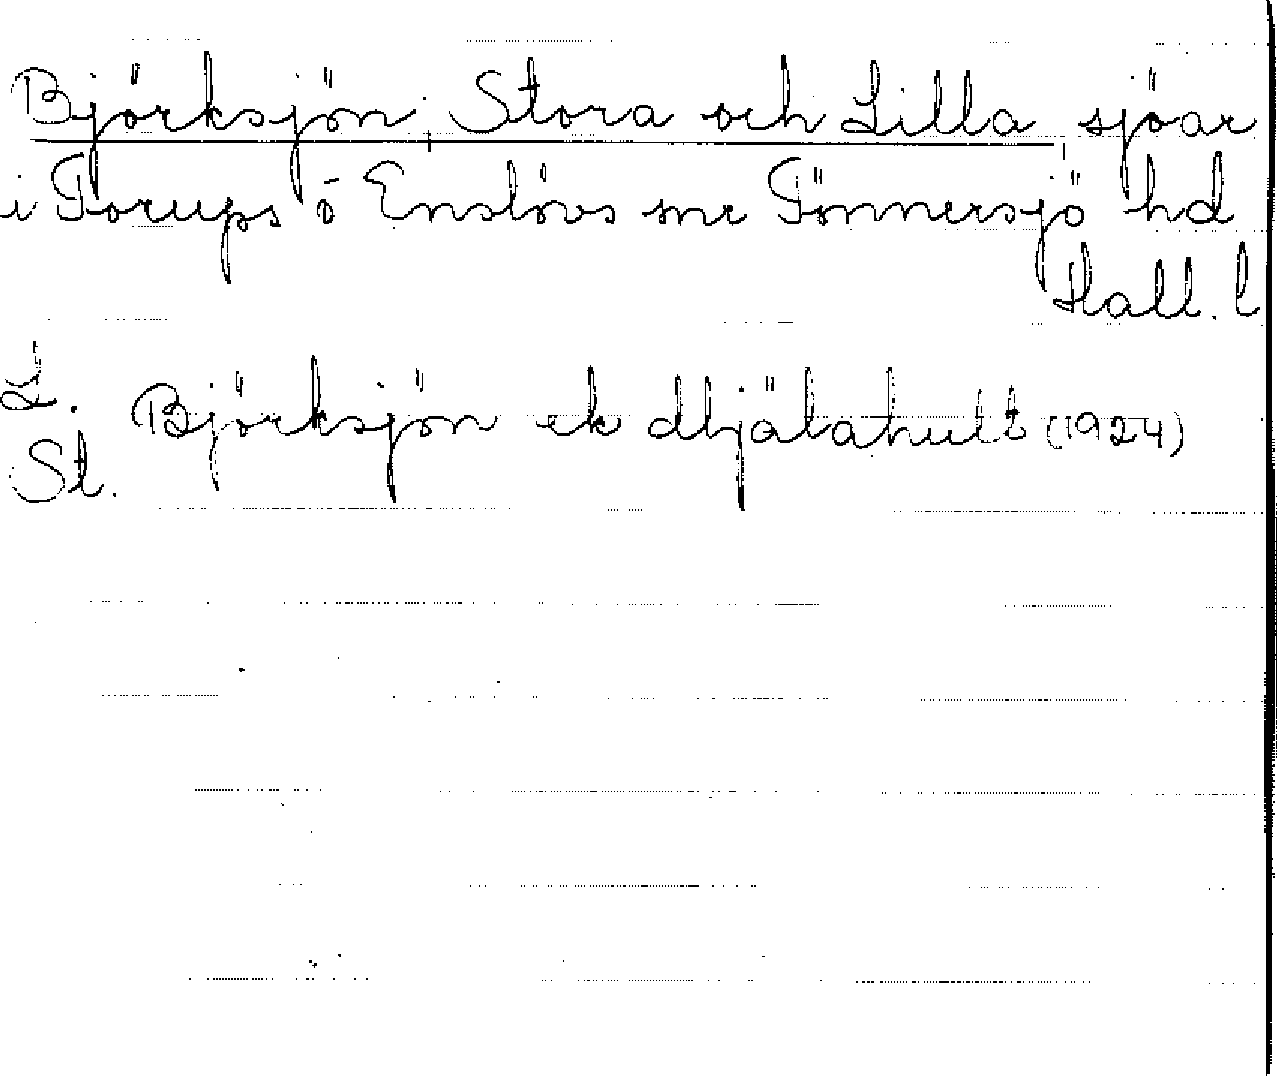 Björksjön, Stora och Lilla sjöar
i Torups o Enslövs snr Tönnersjö hd
Hall. l
L.
St. Björksjön ek (1924)